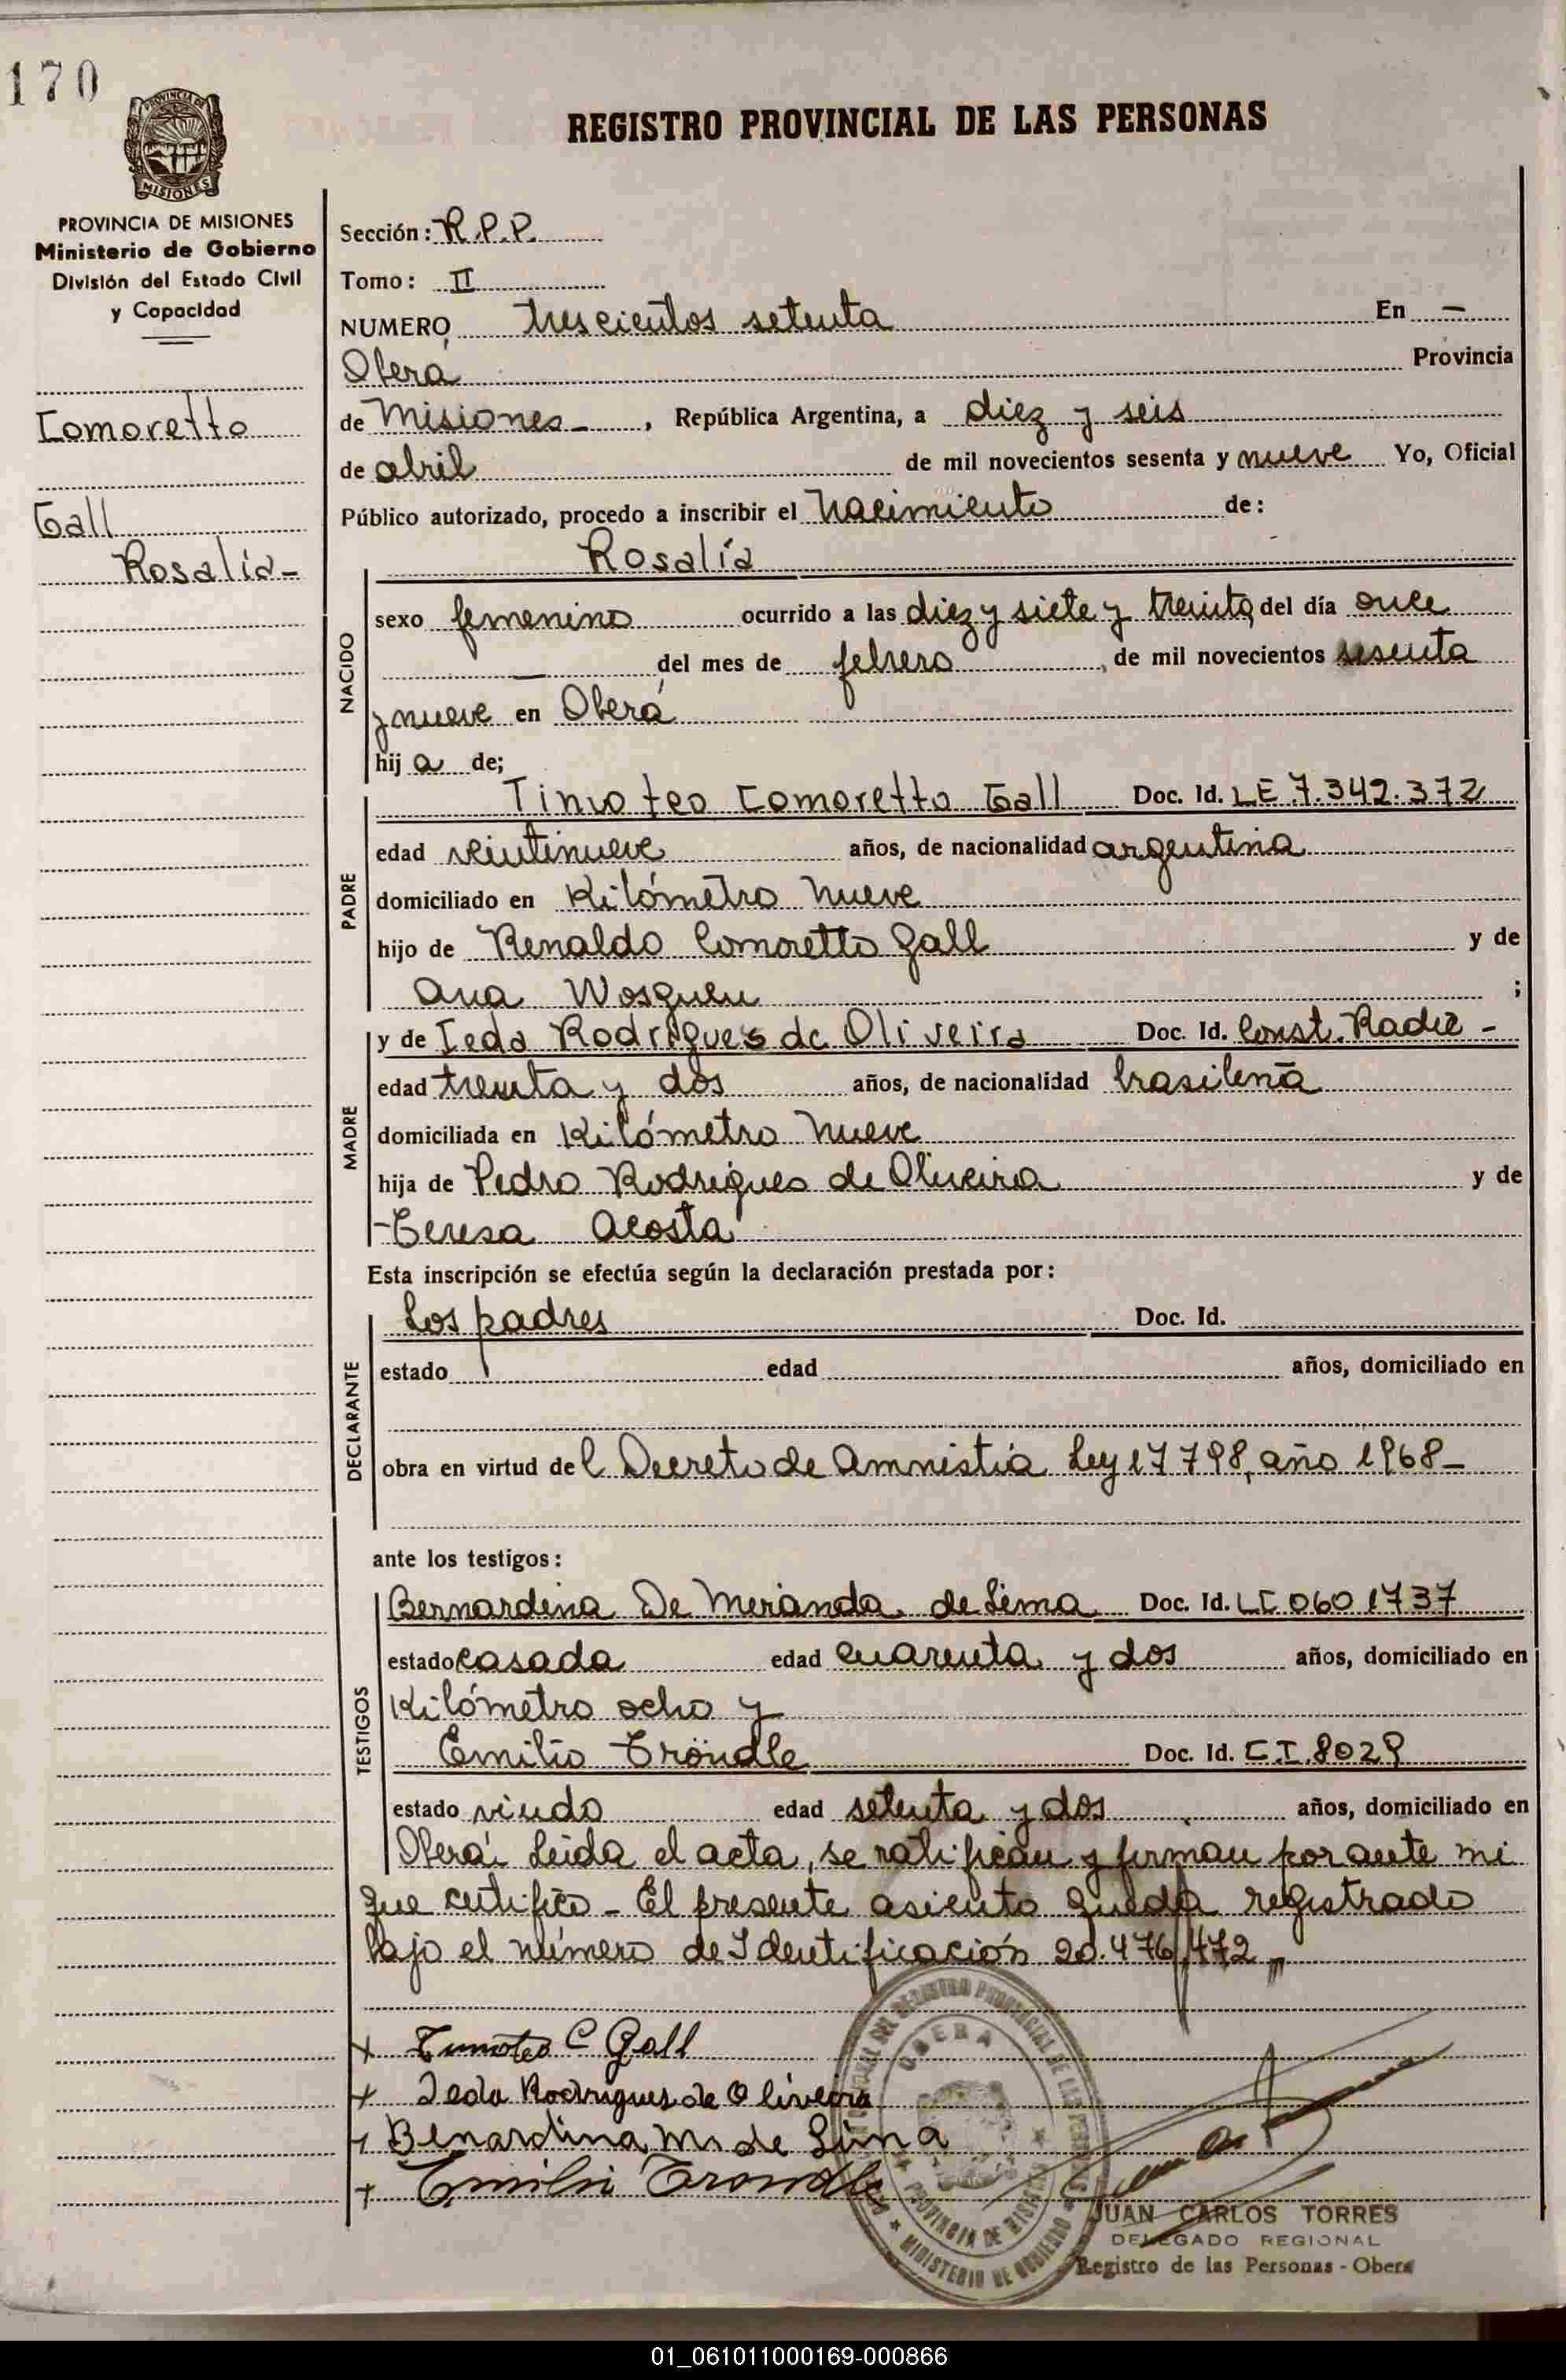 170
PROVINCIA DE
MISIONES
REGISTRO PROVINCIAL DE LAS PERSONAS
PROVINCIA DE MISIONES
Ministerio de Gobierno
División del Estado Civil
y Capacidad
Comoretto
Gall
Rosalía-
Sección: R.P.P.
Tomo: II
NUMERO, trescientos setenta En —
Oberá Provincia
de Misiones-, República Argentina, a diez y seis
de abril de mil novecientos sesenta y nueve Yo, Oficial
Público autorizado, procedo a inscribir el nacimiento de:
Rosalía
NACIDO
sexo femenino ocurrido a las diez y siete y treinta del día once
— del mes de febrero, de mil novecientos sesenta
y nueve en Oberá
hij a de;
PADRE
Timoteo Comoretto Gall Doc. Id. LE 7.342.372
edad veintinueve años, de nacionalidad argentina
domiciliado en Kilómetro nueve
hijo de Renaldo Comoretto Gall y de
Ana Wosguen ;
MADRE
y de Ieda Rodrigues de Oliveira Doc. Id. Const. Radic -
edad treinta y dos años, de nacionalidad brasileña
domiciliada en Kilómetro nueve
hija de Pedro Rodrigues de Oliveira y de
Teresa Acosta
Esta inscripción se efectúa según la declaración prestada por:
DECLARANTE
Los padres Doc. Id.
estado edad años, domiciliado en
obra en virtud del Decreto de Amnistia Ley 17798, año 1968-
ante los testigos:
TESTIGOS
Bernardina De Meranda de Lima Doc. Id. LC 0601737
estado casada edad cuarenta y dos años, domiciliado en
Kilómetro ocho y
Emilio Tröndle Doc. Id. C.I. 8029
estado viudo edad setenta y dos años, domiciliado en
Oberá. Leida el acta, se ratifican y firman por ante mi
que certifico - El presente asiento queda registrado
bajo el número de Identificación 20.476.472
x Timoteo C Gall
x Ieda Rodrigues de Oliveira
x Benardina M. de Lima
x Emilio Trondle
REGISTRO PROVINCIAL DE LAS PERSONAS
OBERA
PROVINCIA DE MISIONES
MINISTERIO DE GOBIERNO
JUAN CARLOS TORRES
DELEGADO REGIONAL
Registro de las Personas - Obera
01_061011000169-000866